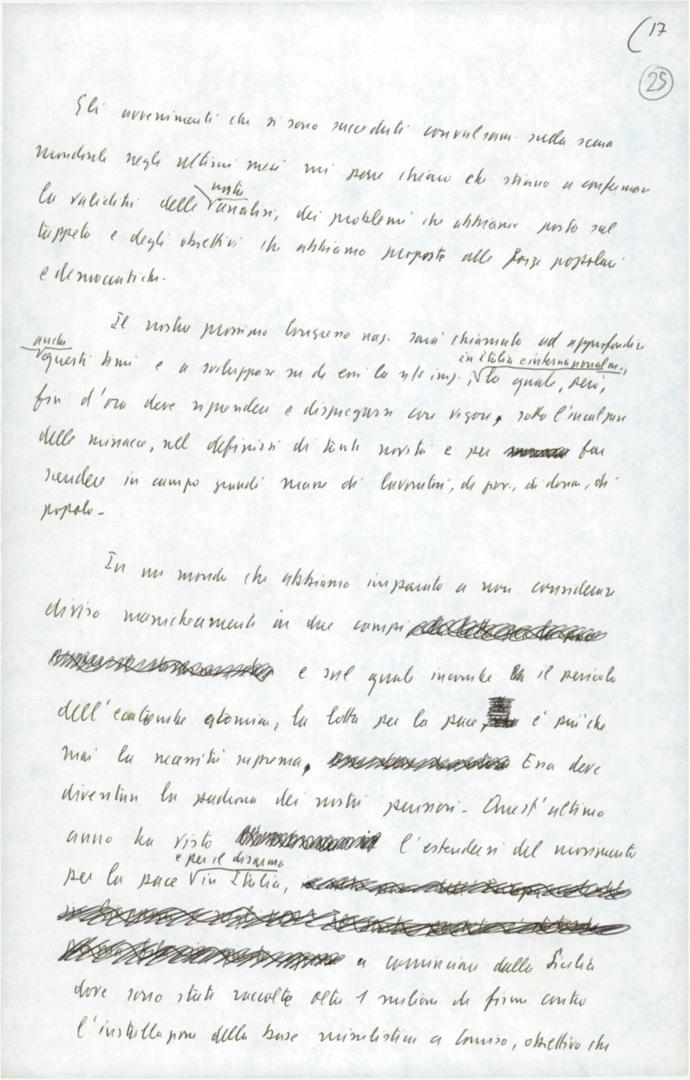 17
25
Gli avvenimenti che si sono succeduti sulla scena
mondiale negli ultimi mesi mi pare chiaro che stiano a confermare
la validità delle nostre analisi, dei problemi che abbiamo posto sul
tappeto e degli obiettivi che abbiamo proposto alle forze popolari
e democratiche.
Il nostro prossimo Congresso naz. sarà chiamato ad approfondire
anche questi temi e a sviluppare su di essi la in Italia e internazionalm., la quale, però,
fin d'ora deve riprendere e dispiegarsi con vigore, sotto l'incalzare
delle minacce, nel definirsi di tante novità e per far
scendere in campo grandi masse di lavoratori, di giov., di donne, di
popolo.
In un mondo che abbiamo imparato a non considerare
diviso manicheamente in due campi
e sul quale incombe il pericolo
dell'ecatombe atomica, la lotta per la pace, è più che
mai la necessità suprema. Essa deve
diventare la padrona dei nostri pensieri. Quest'ultimo
anno ha visto l'estendersi del movimento
per la pace e per il disarmo in Italia,
a cominciare dalla Sicilia
dove sono state raccolte oltre 1 milione di firme contro
l'installazione della base missilistica a Comiso, obiettivo che